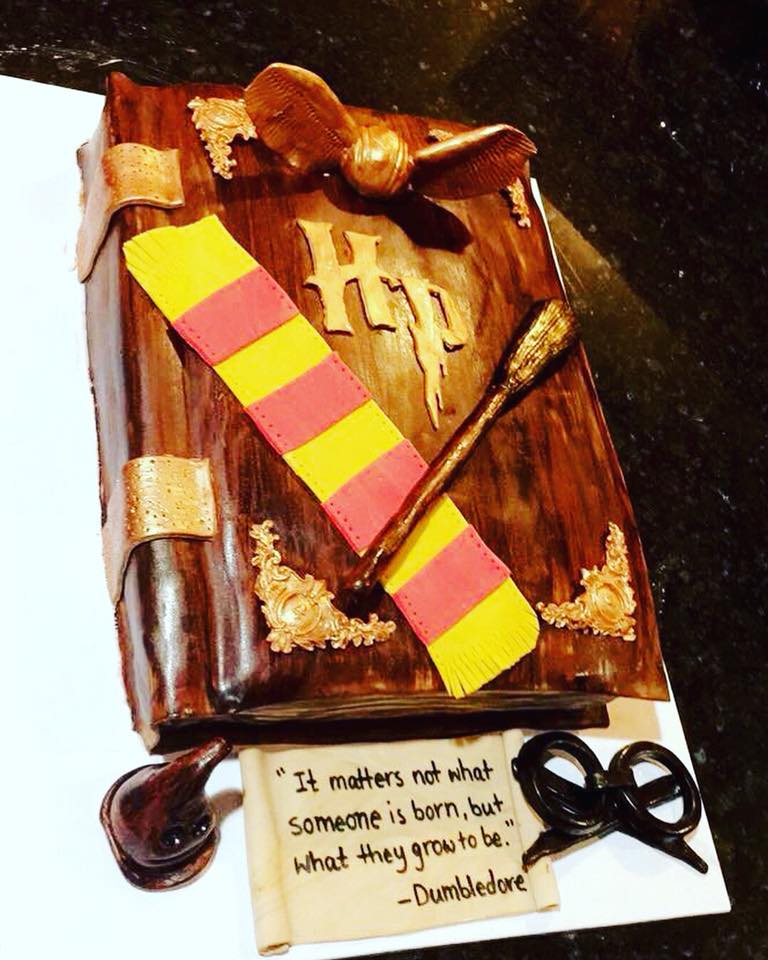 HP
"It matters not what
someone is born, but
what they grow to be."
-Dumbledore